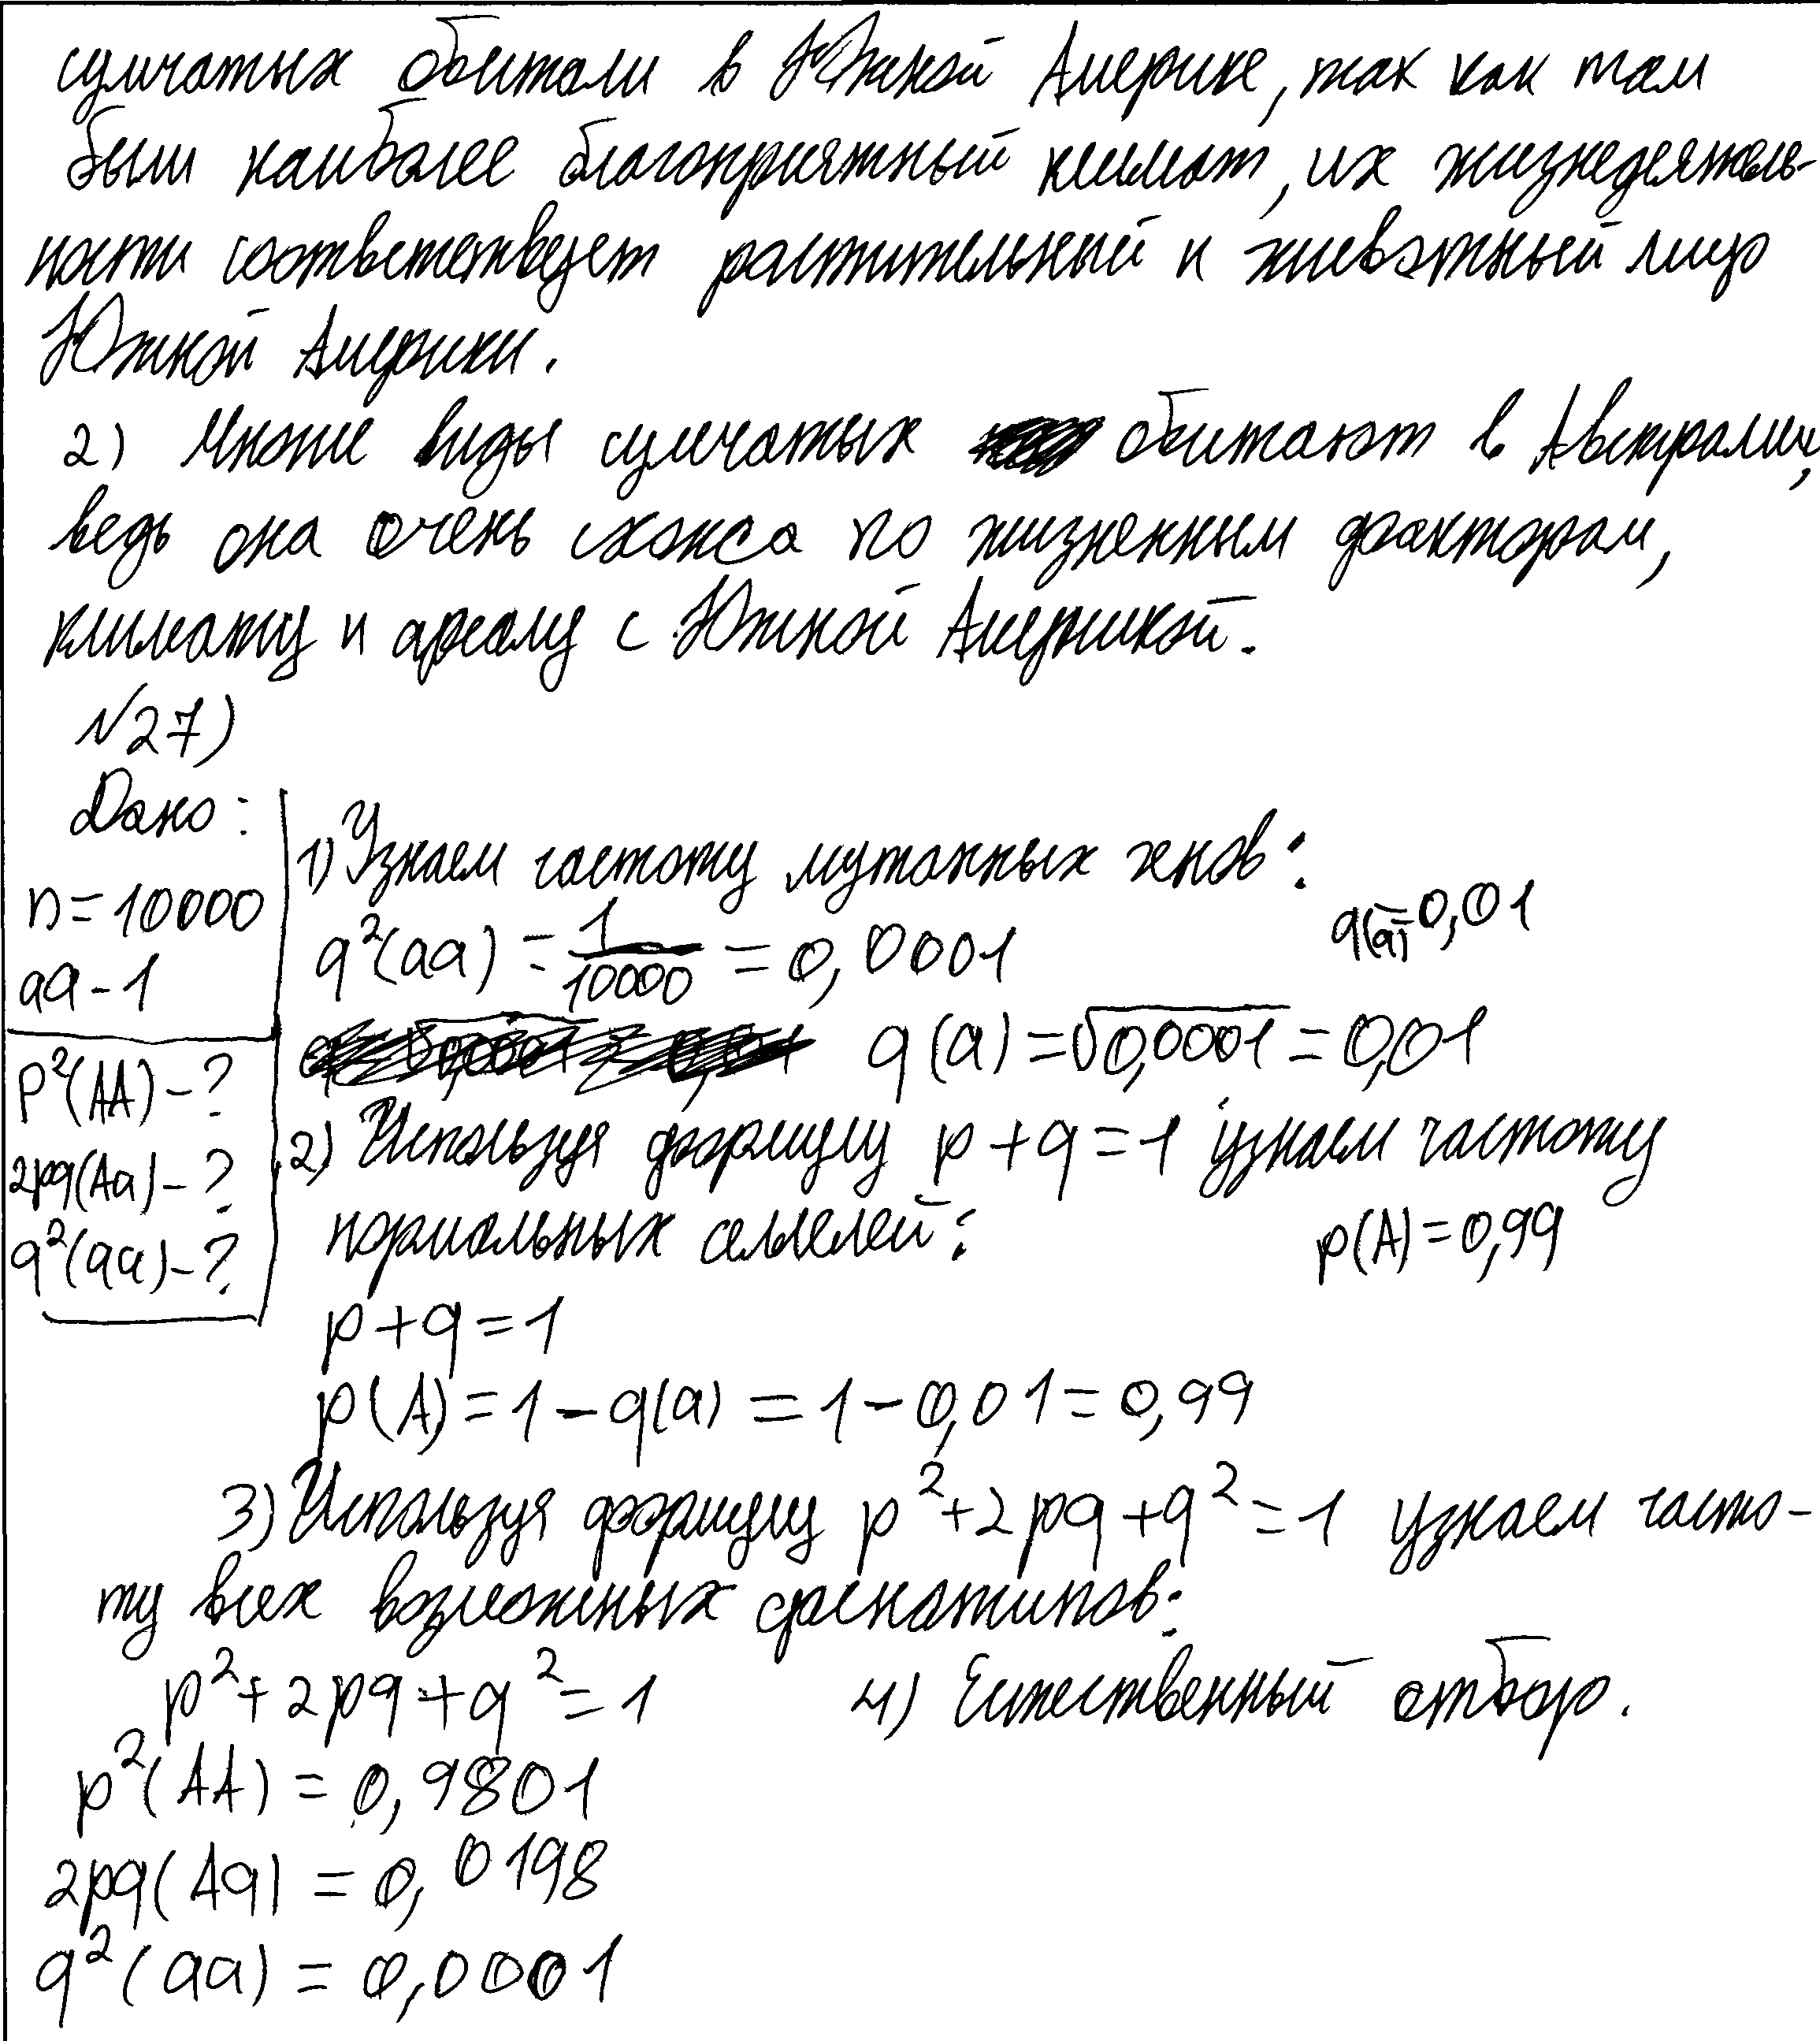 сумчатых обитали в Южной Америке, так как там
были наиболее благоприятный климат, их жизнедеятель-
ности соответствует растительный и животный мир
Южной Америки.
2) Многие виды сумчатых обитают в Австралии,
ведь она очень схожа по жизненным факторам,
климату и ареалу с Южной Америкой.
№27)
Дано:
n=10000
aa-1
p²(AA)-?
2pq(Aa)-?
q²(aa)-?
1) Узнаем частоту мутанных генов:
q(a)=0,01
q²(aa) = 1/10000 = 0,0001
q(a) = √0,0001 = 0,01
2) Используя формулу p+q=1 узнаем частоту
нормальных аллелей:
p(A)=0,99
p+q=1
p(A)=1-q(a)=1-0,01=0,99
3) Используя формулу p²+2pq+q²=1 узнаем часто-
ту всех возможных фенотипов:
p²+2pq+q²=1
4) Естественный отбор.
p²(AA) = 0,9801
2pq(Aa) = 0,0198
q²(aa) = 0,0001